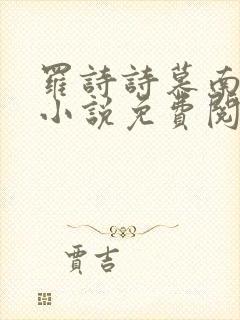 羅詩詩慕南
小說免費閱
賈吉